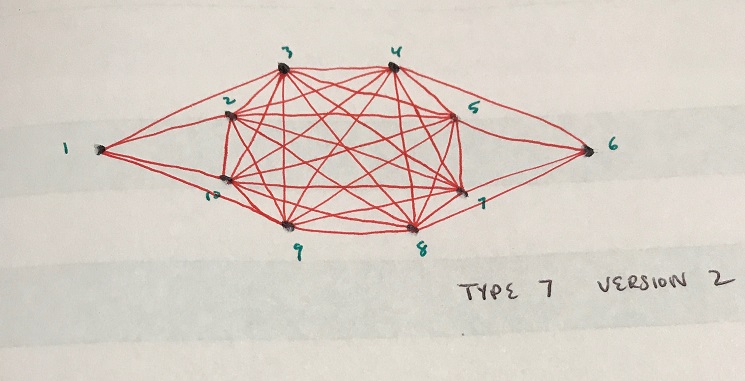 3 4
2 5
1 6
10 7
9 8
TYPE 7 VERSION 2